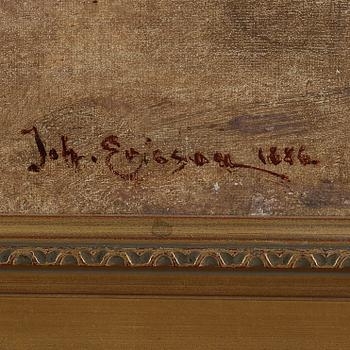 Joh. Ericson 1886.